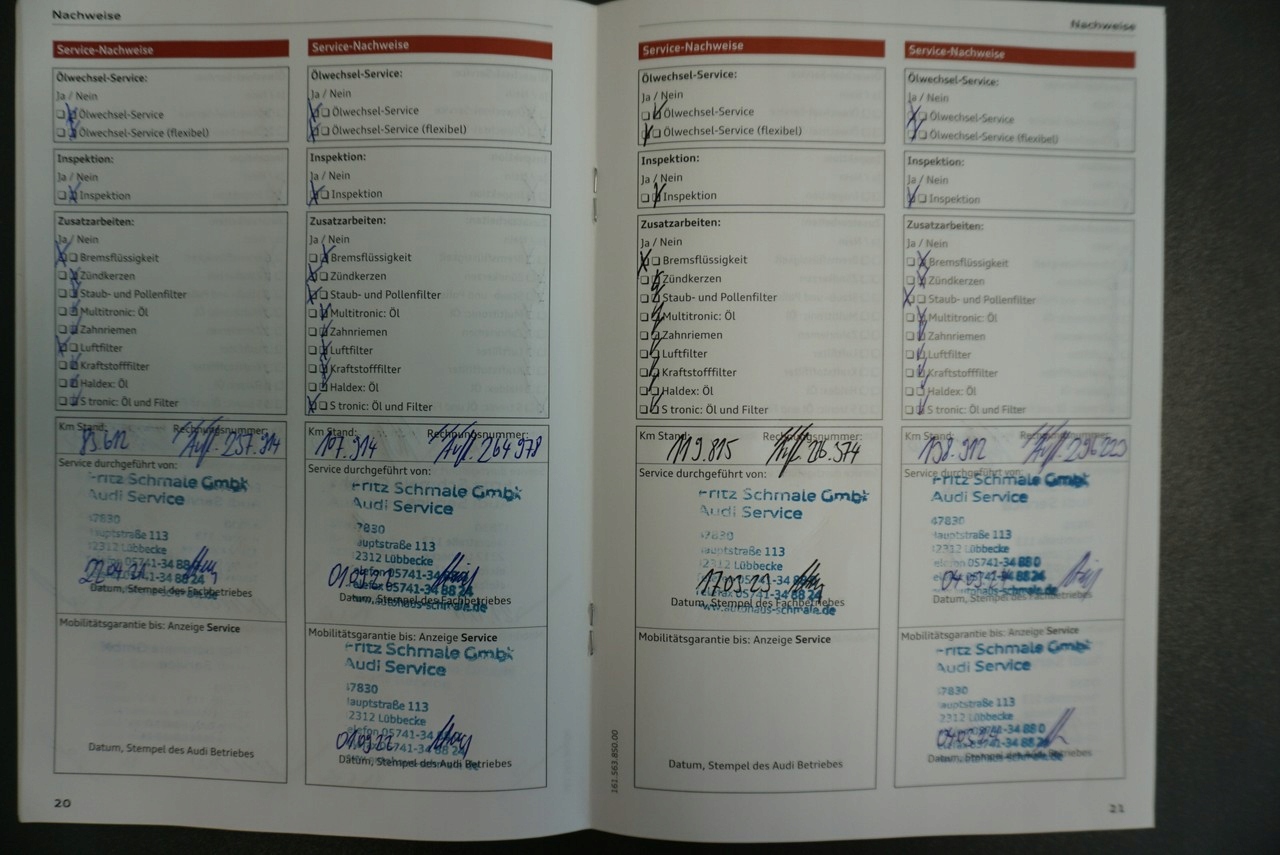 Nachweise
Service-Nachweise
Ölwechsel-Service:
Ja / Nein
Ölwechsel-Service
Ölwechsel-Service (flexibel)
Inspektion:
Ja / Nein
Inspektion
Zusatzarbeiten:
Ja / Nein
Bremsflüssigkeit
Zündkerzen
Staub- und Pollenfilter
Multitronic: Öl
Zahnriemen
Luftfilter
Kraftstofffilter
Haldex: Öl
S tronic: Öl und Filter
Km Stand: Rechnungsnummer:
83.612 Auft. 257.914
Service durchgeführt von:
Fritz Schmale GmbH
Audi Service
47830
Hauptstraße 113
32312 Lübbecke
05741-34 88 24
Datum, Stempel des Fachbetriebes
Mobilitätsgarantie bis: Anzeige Service
Datum, Stempel des Audi Betriebes
20
Service-Nachweise
Ölwechsel-Service:
Ja / Nein
Ölwechsel-Service
Ölwechsel-Service (flexibel)
Inspektion:
Ja / Nein
Inspektion
Zusatzarbeiten:
Ja / Nein
Bremsflüssigkeit
Zündkerzen
Staub- und Pollenfilter
Multitronic: Öl
Zahnriemen
Luftfilter
Kraftstofffilter
Haldex: Öl
S tronic: Öl und Filter
Km Stand: Rechnungsnummer:
107.914 Auft. 264978
Service durchgeführt von:
Fritz Schmale GmbH
Audi Service
7830
auptstraße 113
2312 Lübbecke
elefon 05741-34
elefax 05741-34 88 24
www.autohaus-schmale.de
Datum, Stempel des Fachbetriebes
Mobilitätsgarantie bis: Anzeige Service
Fritz Schmale GmbH
Audi Service
47830
auptstraße 113
2312 Lübbecke
elefon 05741-34
05741-34 88 24
01.09.22
Datum, Stempel des Audi Betriebes
Nachweise
Service-Nachweise
Ölwechsel-Service:
Ja / Nein
Ölwechsel-Service
Ölwechsel-Service (flexibel)
Inspektion:
Ja / Nein
Inspektion
Zusatzarbeiten:
Ja / Nein
Bremsflüssigkeit
Zündkerzen
Staub- und Pollenfilter
Multitronic: Öl
Zahnriemen
Luftfilter
Kraftstofffilter
Haldex: Öl
S tronic: Öl und Filter
Km Stand: Rechnungsnummer:
119.815 Auft.
Service durchgeführt von:
Fritz Schmale GmbH
Audi Service
47830
auptstraße 113
2312 Lübbecke
05741-34
17.03.23
05741-34 88 24
www.autohaus-schmale.de
Datum, Stempel des Fachbetriebes
Mobilitätsgarantie bis: Anzeige Service
Datum, Stempel des Audi Betriebes
161.563.850.00
Service-Nachweise
Ölwechsel-Service:
Ja / Nein
Ölwechsel-Service
Ölwechsel-Service (flexibel)
Inspektion:
Ja / Nein
Inspektion
Zusatzarbeiten:
Ja / Nein
Bremsflüssigkeit
Zündkerzen
Staub- und Pollenfilter
Multitronic: Öl
Zahnriemen
Luftfilter
Kraftstofffilter
Haldex: Öl
S tronic: Öl und Filter
Km Stand:
138.912 Auft. 296223
Service durchgeführt von:
Fritz Schmale GmbH
Audi Service
47830
auptstraße 113
2312 Lübbecke
elefon 05741-34 88 0
05741-34 88 24
Datum, Stempel des Fachbetriebes
Mobilitätsgarantie bis: Anzeige Service
Fritz Schmale GmbH
Audi Service
7830
auptstraße 113
2312 Lübbecke
05741-34 88 0
05741-34 88 24
Datum, Stempel des Audi Betriebes
21